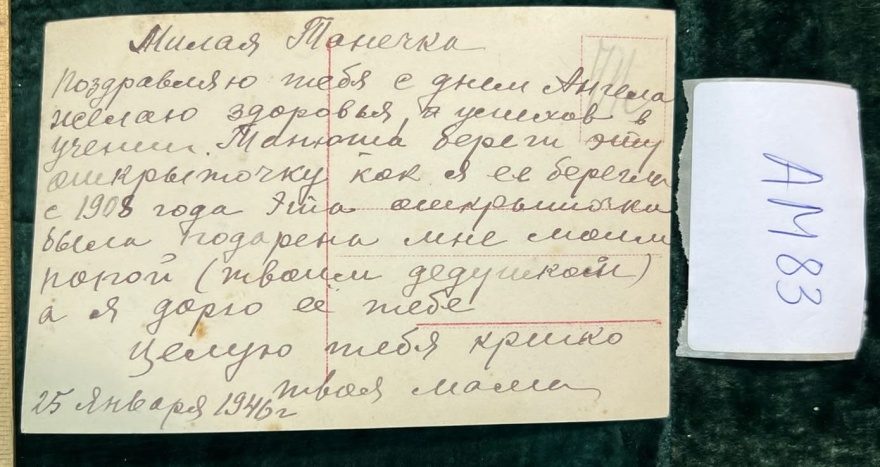 Милая Танечка
Поздравляю тебя с днем Ангела
желаю здоровья, и успехов в
учении. Танюша береги эту
открыточку как я ее берегла
с 1908 года Эта открыточка
была подарена мне моим
папой (твоим дедушкой)
а я дарю её тебе
Целую тебя крепко
твоя мама
25 января 1946 г
АМ 83